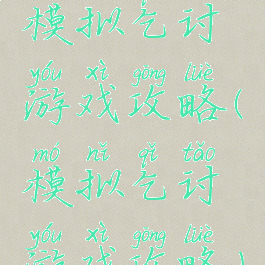 模拟乞讨
yóu xì gōng lüè
游戏攻略(
mó nǐ qǐ tǎo
模拟乞讨
yóu xì gōng lüè
游戏攻略)